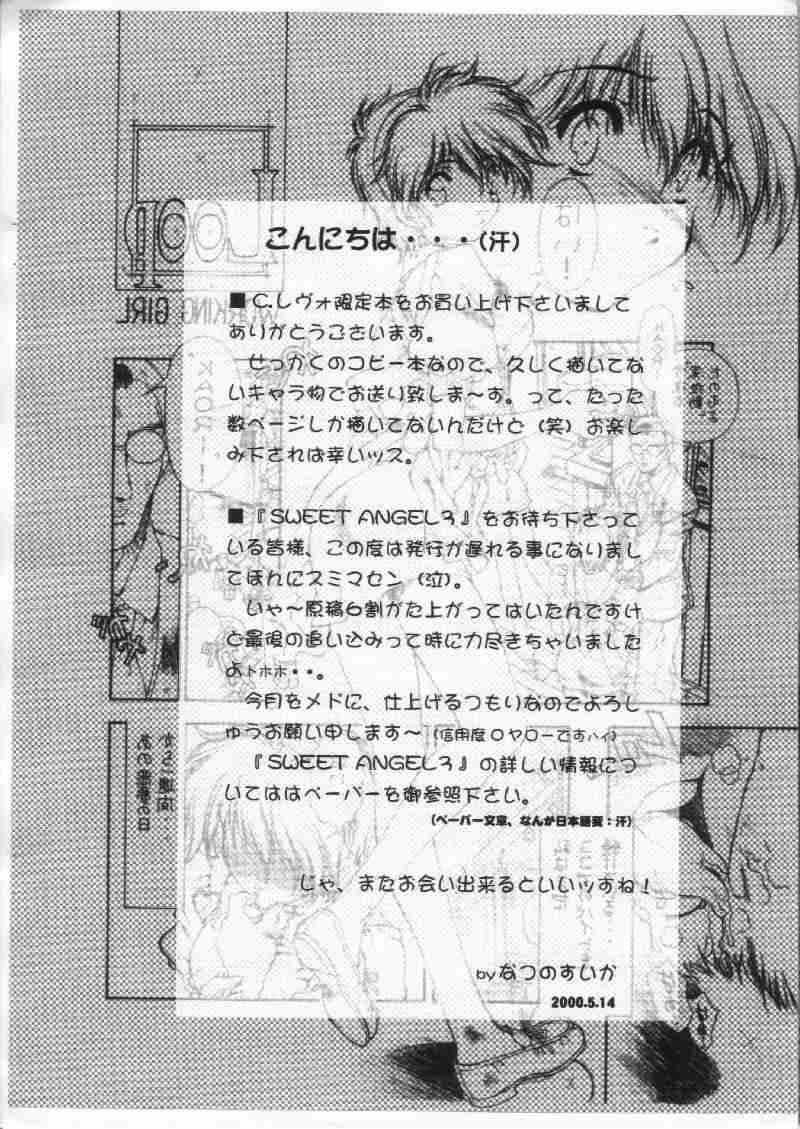 こんにちは・・・(汗)
■C.レヴォ限定本をお買い上げ下さいまして
ありがとうございます。
せっかくのコピー本なので、久しく描いてな
いキャラ物でお送り致しま〜す。って、たった
数ページしか描いてないんだけど(笑)お楽し
み下されば幸いッス。
■『SWEET ANGEL3』をお待ち下さって
いる皆様、この度は発行が遅れる事になりまし
てほんにスミマセン(泣)。
いゃ〜原稿6割がた上がってはいたんですけ
ど最後の追い込みって時に力尽きちゃいました
よトホホ・・。
今月をメドに、仕上げるつもりなのでよろし
ゅうお願い申します〜(信用度0ヤローですハイ)
『SWEET ANGEL3』の詳しい情報につ
いてははペーパーを御参照下さい。
(ペーパー文章、なんか日本語変:汗)
じゃ、またお会い出来るといいッすね!
by なつのすいか
2000.5.14
は…!
WORKING GIRL
KAOR